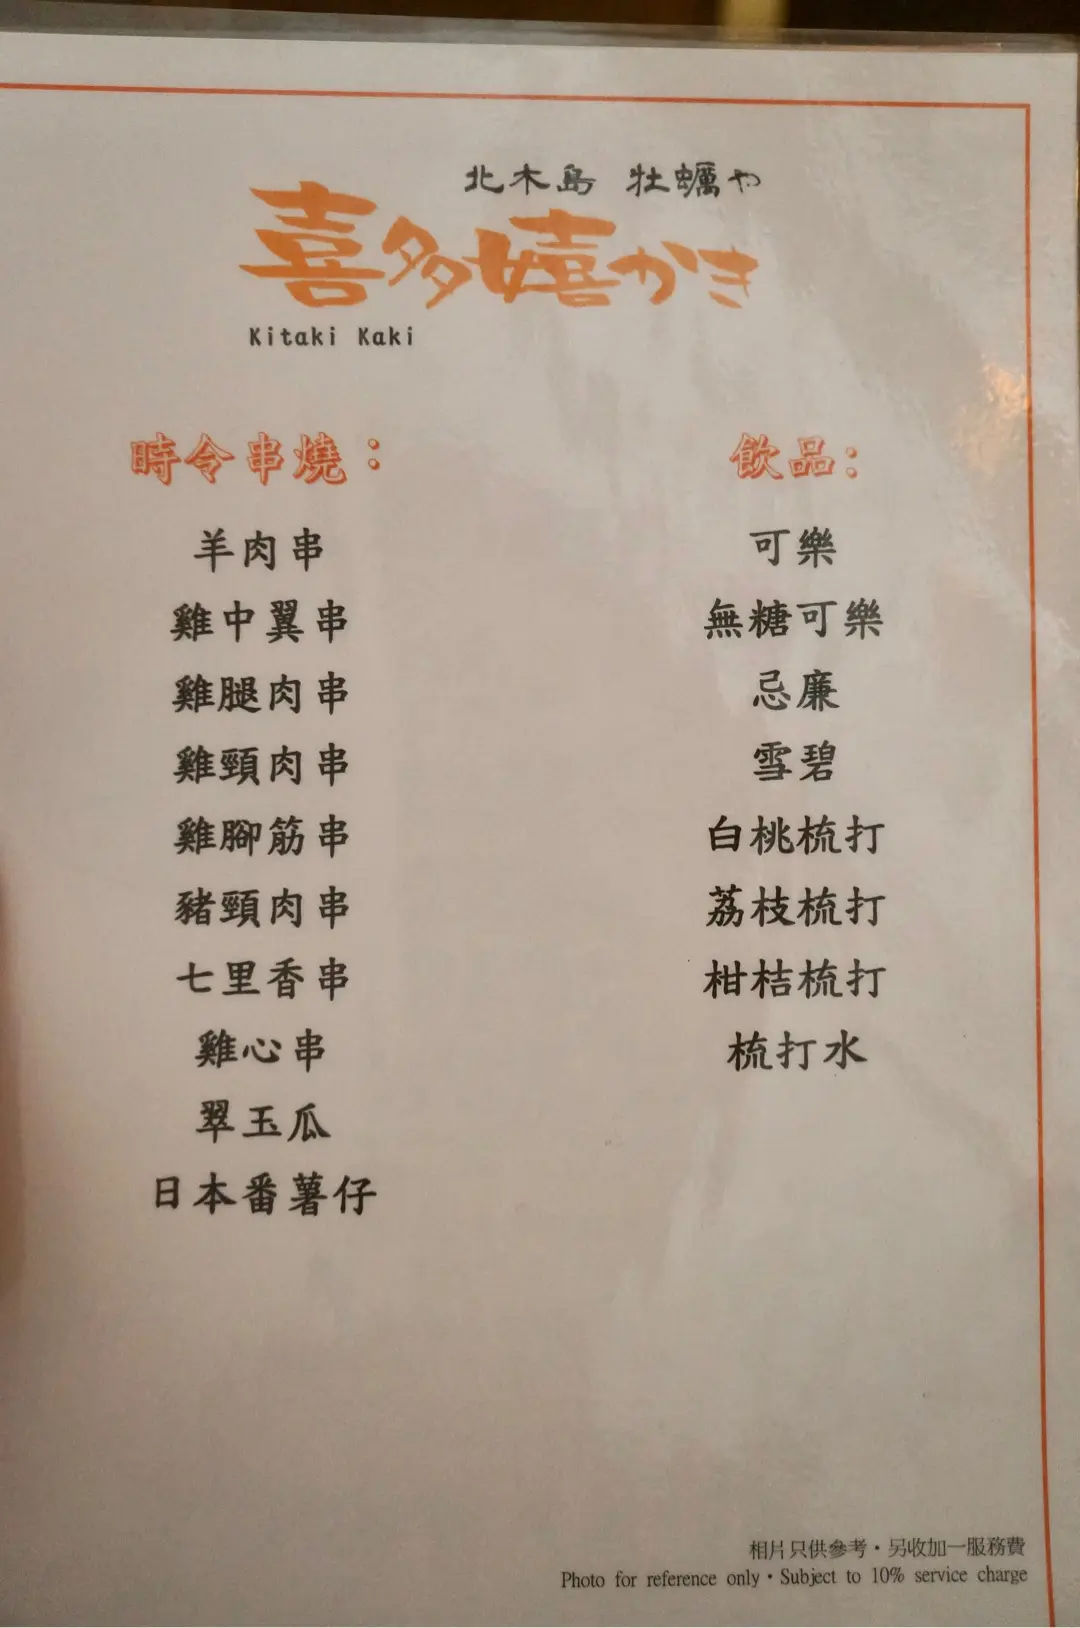 北木島 牡蠣や
喜多嬉かき
Kitaki Kaki
時令串燒：
羊肉串
雞中翼串
雞腿肉串
雞頸肉串
雞腳筋串
豬頸肉串
七里香串
雞心串
翠玉瓜
日本番薯仔
飲品：
可樂
無糖可樂
忌廉
雪碧
白桃梳打
荔枝梳打
柑桔梳打
梳打水
相片只供參考・另收加一服務費
Photo for reference only・Subject to 10% service charge